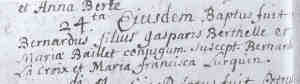 et Anna Berte
24ta Ejusdem Baptus fuit
Bernardus filius gasparis Berthelle et
Mariæ Baillet conjugum Suscept. Bernard
La Croix et Maria francisca Lurquin